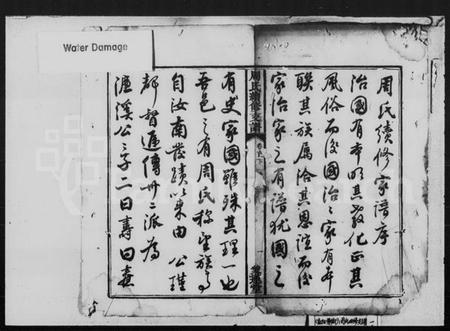 Water Damage
周氏續修家譜序
治國有本明其教化正其
風俗而後國治之家有本
聯其族屬洽其恩誼而後
家治家之有譜猶國之
周氏續修支譜
有史家國雖殊其理一也
吾邑之有周氏稱望族焉
自汝南發績以來由 公瑾
都督遞傳卅派為
濂溪公之子二曰壽曰燾